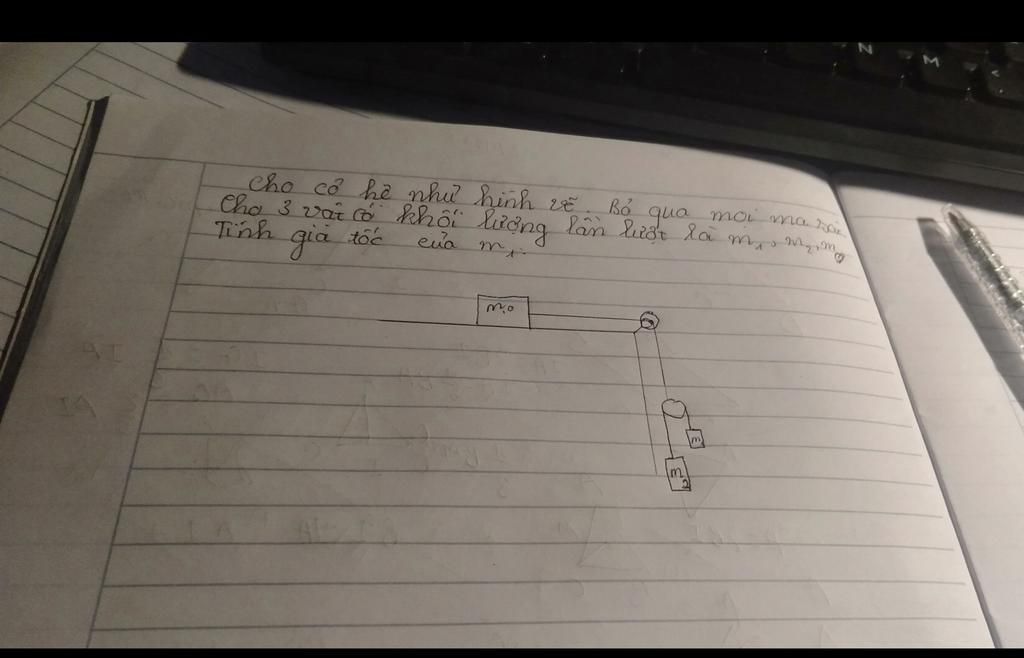 Cho cơ hệ như hình vẽ Bỏ qua mọi ma sát
Cho 3 vật có khối lượng lần lượt là m₁, m₂, m₀
Tính gia tốc của m₁.
m₀
m
m₂
N
M
<